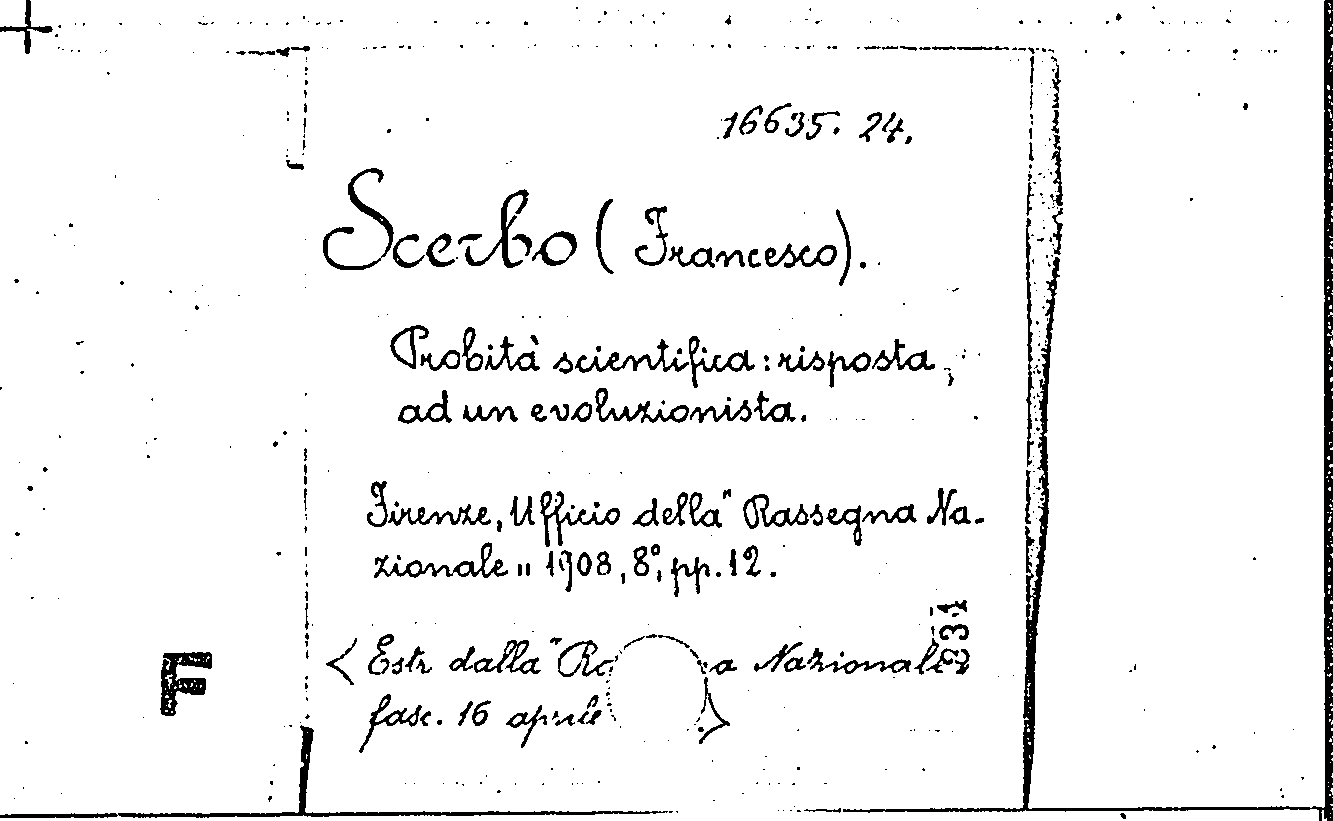 16635. 24.
Scerbo (Francesco).
Probità scientifica: risposta
ad un evoluzionista.
Firenze, Ufficio della "Rassegna Na-
zionale" 1908, 8º, pp. 12.
< Estr dalla "Ra a Nazionale
fasc. 16 aprile >
331
F